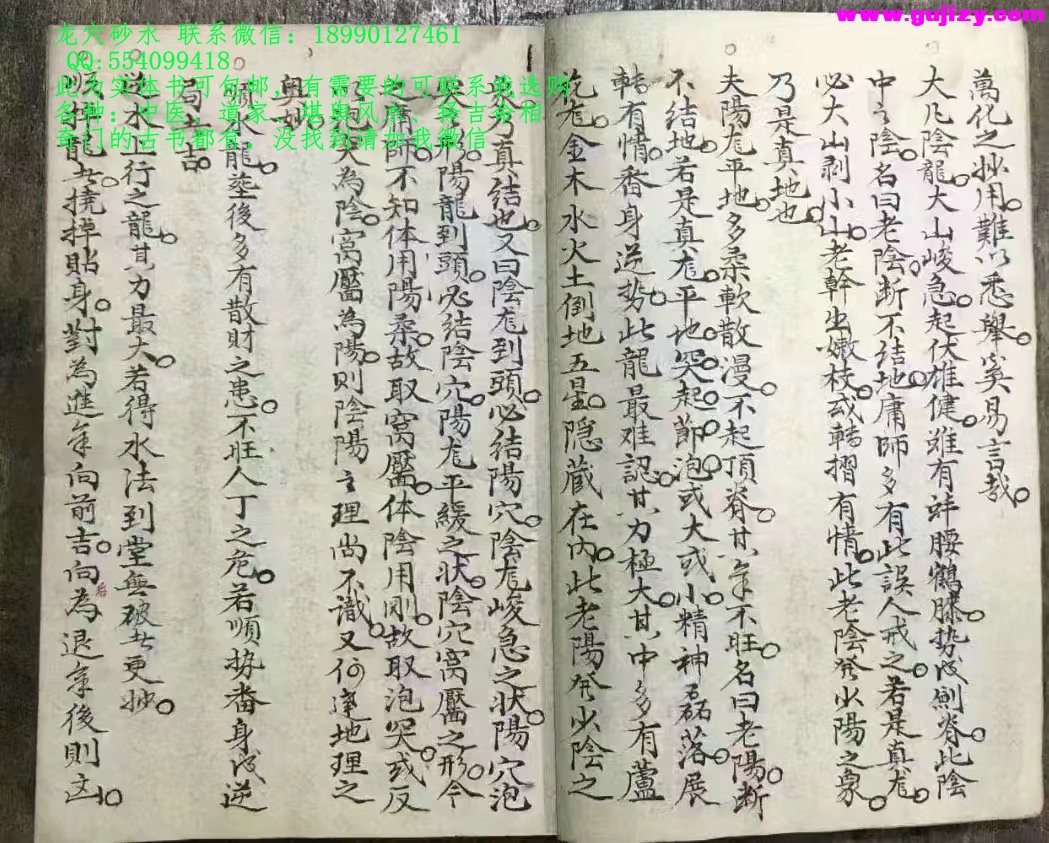 www.gujizy.com
龙穴砂水 联系微信：18990127461
QQ:554099418
此为实体书可包邮，有需要的可联系我选购
各种：中医、道家、堪舆风水、择吉命相
奇门的古书都有，没找到请加我微信
萬化之妙用。難以悉舉。奚易言哉。
大凡陰龍。大山峻急。起伏雄健。雖有蜂腰鶴膝。势必劍脊。此陰
中之陰。名曰老陰。断不结地。庸師多有此誤人。戒之。若是真龙。
必大山剥小山。老幹出嫩枝。或轉摺有情。此老陰發少陽之象。
乃是真地也。
夫陽龙平地。多柔軟散漫。不起頂脊。其氣不旺。名曰老陽。断
不结地。若是真龙。平地突起。節泡。或大或小。精神磊落。展
轉有情。番身逆势。此龍最难認。其力極大。其中多有蘆
花。金木水火土倒地五星。隐蔵在内。此老陽發少陰之
象。乃真结也。又曰陰龙到頭。必结陽穴。陰龙峻急之状。陽穴泡
陽龍到頭。必结陰穴。陽龙平緩之状。陰穴窩靨之形。今
之庸師。不知体用。陽柔。故取窩靨。体陰用刚。故取泡突。或反
突為陰。窩靨為陽。則陰陽之理尚不識。又何達地理之
奥妙。
水龍。塟後多有散財之患。不旺人丁之危。若順势番身成逆
局之吉。
逆水上行之龍。其力最大。若得水法到堂無破者更妙。
順掉龍者。撓掉貼身。對為進氣向前吉。向后為退氣後則凶。